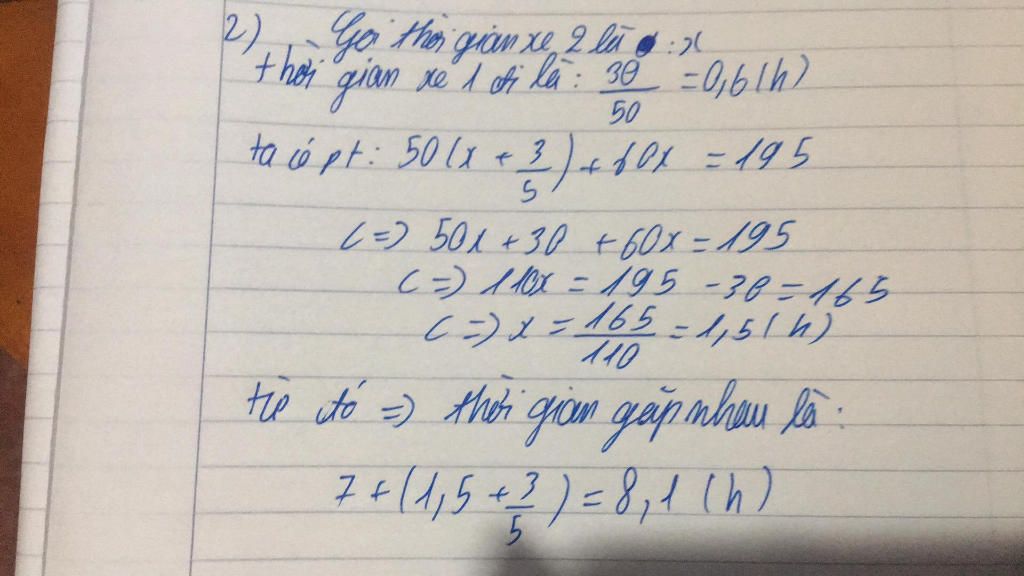 2) Gọi thời gian xe 2 là : x
thời gian xe 1 đi là: 30/50 = 0,6 (h)
ta có pt: 50(x + 3/5) + 60x = 195
<=> 50x + 30 + 60x = 195
<=> 110x = 195 - 30 = 165
<=> x = 165/110 = 1,5 (h)
từ đó => thời gian gặp nhau là:
7 + (1,5 + 3/5) = 8,1 (h)